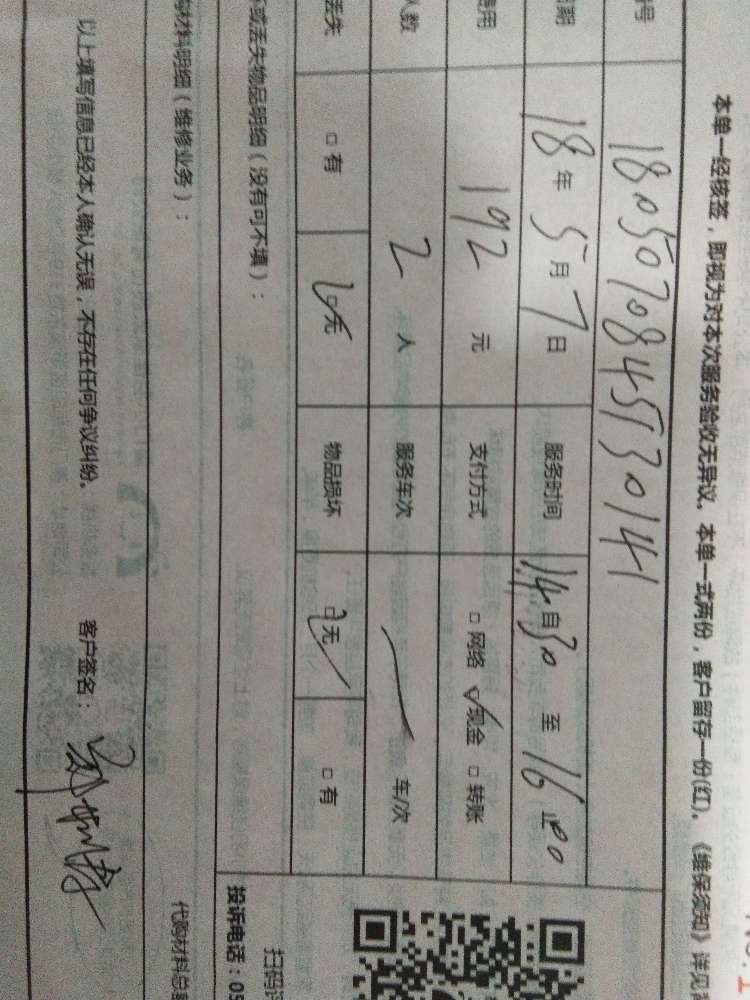 本单一经核签，即视为对本次服务验收无异议。本单一式两份，客户留存一份(红)。《维保须知》详见
号 1805070845530141
期 18年5月7日 服务时间 14自30至16止00
费用 192元 支付方式 □网络 ✓现金 □转账
人数 2人 服务车次 车/次
丢失 □有 □无 物品损坏 □无 □有
坏或丢失物品明细（没有可不填）：
扫码
投诉电话：05
购材料明细（维修业务）：
代购材料总
以上填写信息已经本人确认无误，不存在任何争议纠纷。 客户签名：